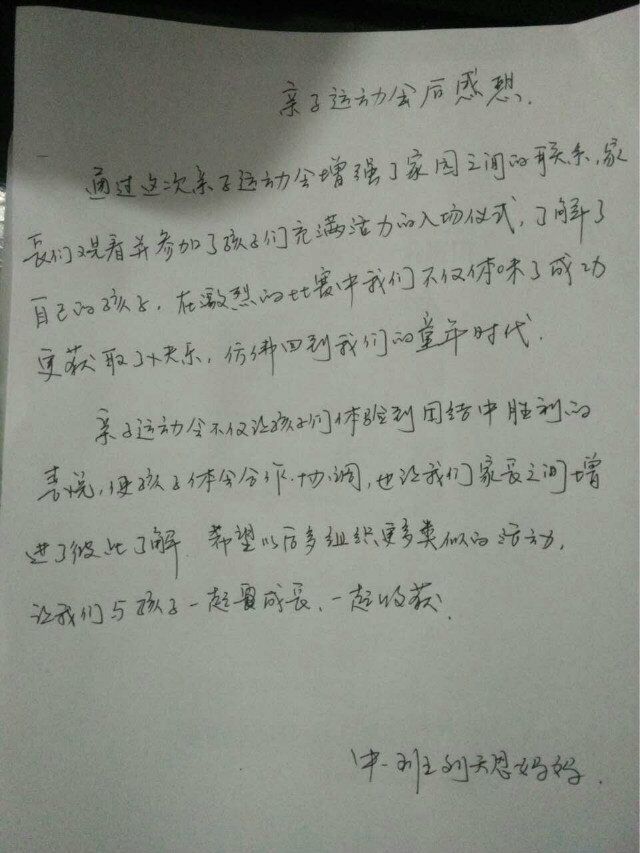 亲子运动会后感想.
通过这次亲子运动会增强了家园之间的联系,家
长们观看并参加了孩子们充满活力的入场仪式,了解了
自己的孩子,在激烈的比赛中我们不仅体味了成功
更获取了快乐,仿佛回到我们的童年时代.
亲子运动会不仅让孩子们体验到团结中胜利的
喜悦,使孩子体会合作、协调,也让我们家长之间增
进了彼此了解.希望以后多组织更多类似的活动,
让我们与孩子一起成长、一起收获.
中一班刘天恩妈妈.